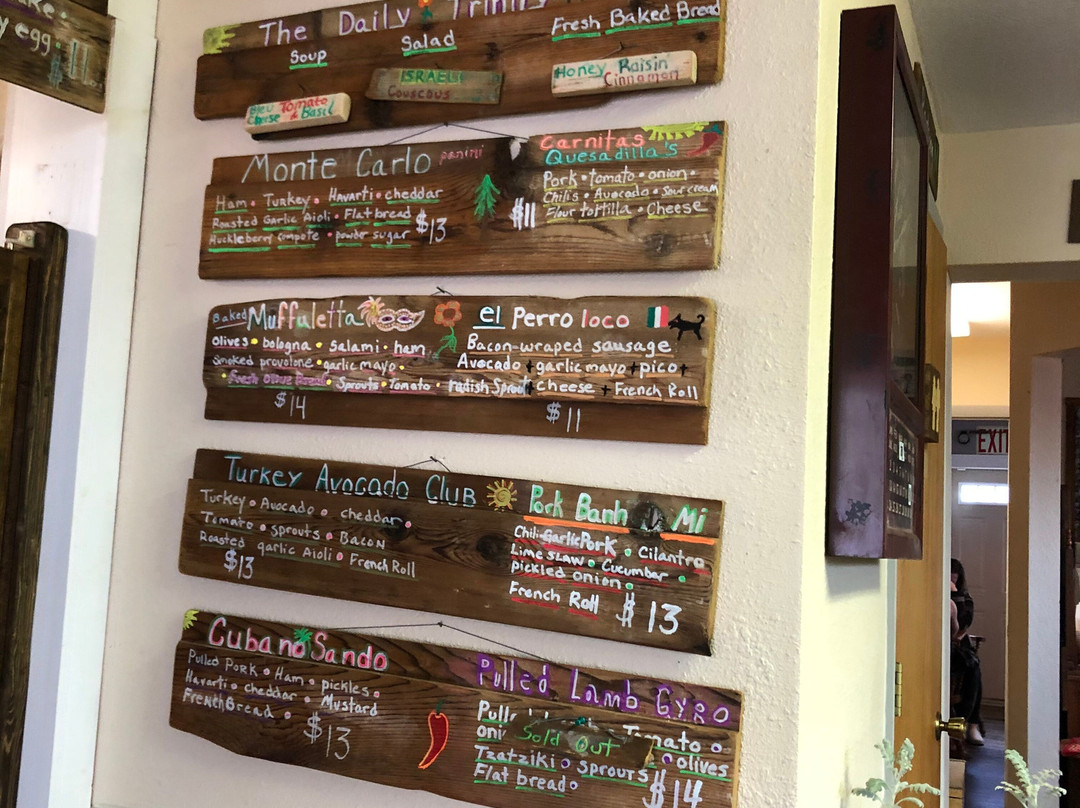 egg. 11
The Daily Trinity
Soup
Salad
Fresh Baked Bread
Bleu Tomato
Cheese & Basil
ISRAELI
Couscous
Honey Raisin
Cinnamon
Monte Carlo panini
Ham • Turkey • Havarti • cheddar
Roasted Garlic Aioli • Flatbread
Huckleberry compote • powder sugar $13
Carnitas
Quesadilla's
Pork • tomato • onion •
Chili's • Avocado • Sour cream
Flour tortilla • Cheese
$11
Baked Muffuletta
Olives • bologna • Salami • ham
Smoked provolone • garlic mayo •
• Fresh Olive Bread • Sprouts • Tomato •
$14
el Perro loco
Bacon-wraped sausage
Avocado + garlic mayo + pico +
radish Sprout + cheese + French Roll
$11
Turkey Avocado Club
Turkey • Avocado • cheddar •
Tomato • sprouts • Bacon
Roasted garlic Aioli • French Roll
$13
Pork Banh Mi
Chili-Garlic Pork • Cilantro
Lime SLAW • Cucumber •
pickled onion •
French Roll $13
Cubano Sando
Pulled Pork • Ham • pickles •
Havarti • cheddar • Mustard
French Bread •
$13
Pulled Lamb Gyro
Tomato •
Sold Out
olives
Tzatziki • sprouts
Flat bread •
$14
EXI